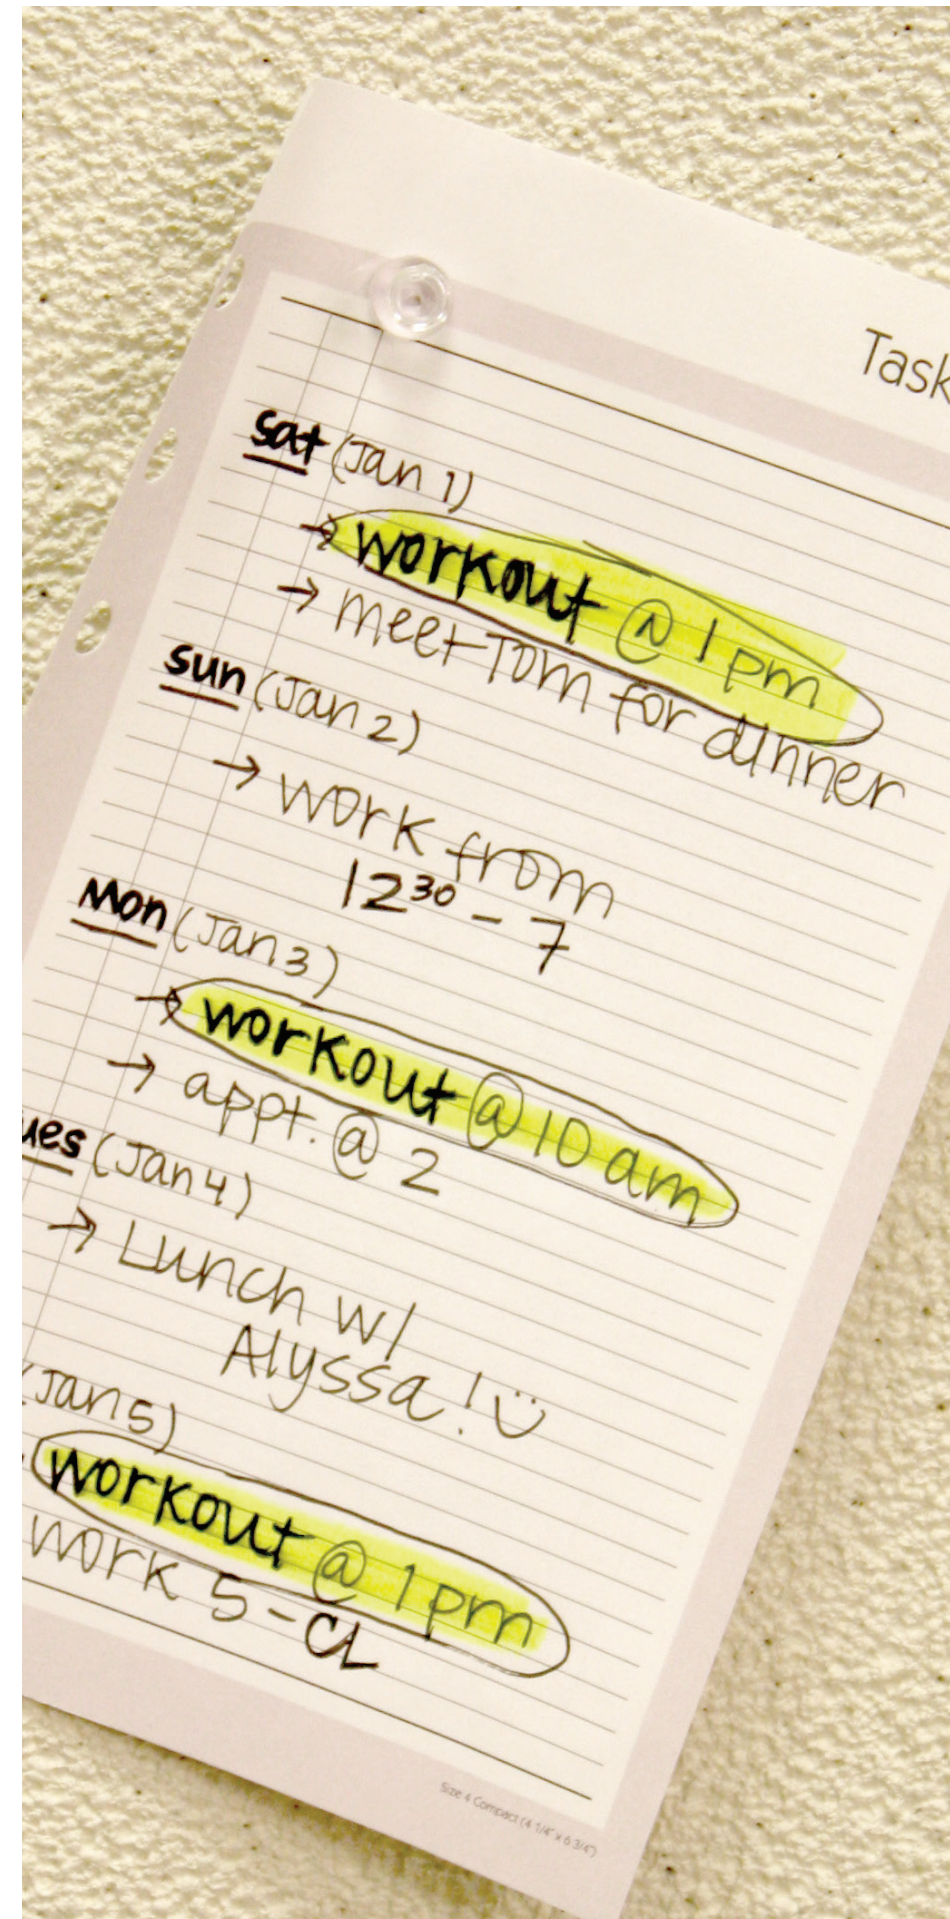 Task
Sat (Jan 1)
→ workout @ 1 pm
→ meet Tom for dinner
sun (Jan 2)
→ work from
12³⁰ - 7
Mon (Jan 3)
→ workout @ 10 am
→ appt. @ 2
ues (Jan 4)
→ Lunch w/
Alyssa! :)
(Jan 5)
workout @ 1 pm
work 5 - CL
Size 4 Compact (4 1/4" x 6 3/4")